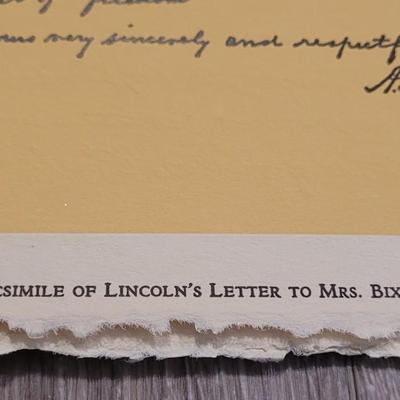 of freedom
very sincerely and respectf
A.
CSIMILE OF LINCOLN'S LETTER TO MRS. BIX